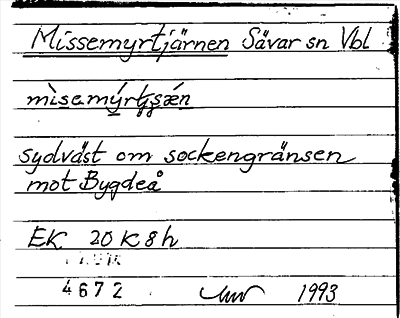 Missemyrtjärnen Sävar sn Vbl
mìsemýrtjsǽn
sydväst om sockengränsen
mot Bygdeå
EK 20 K 8 h
4672 1993